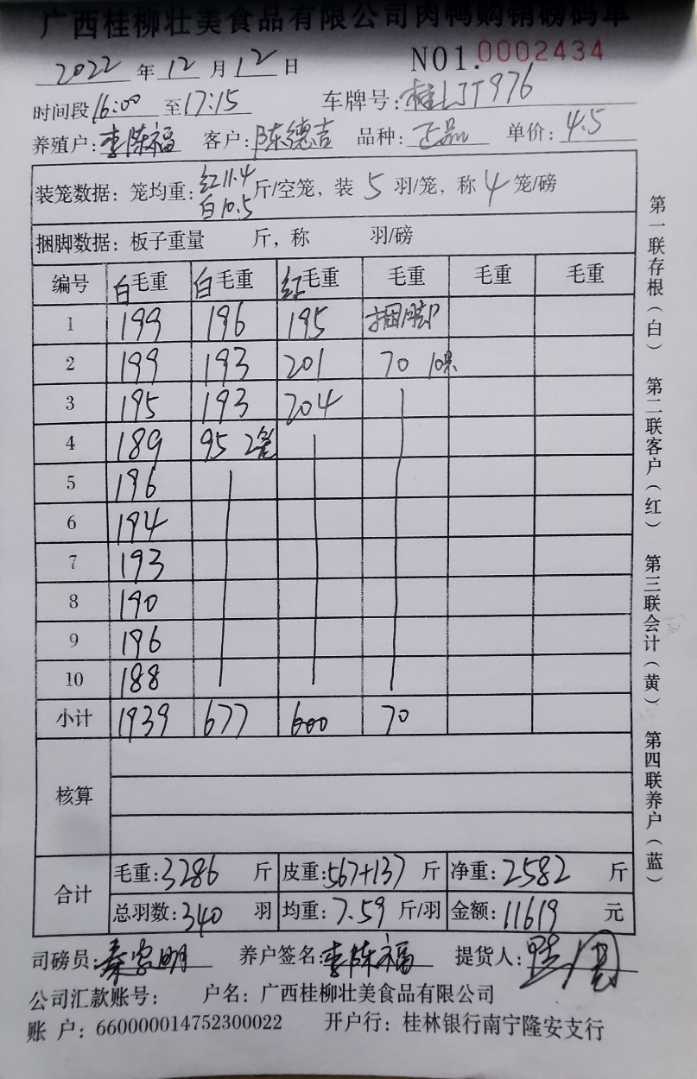 广西桂柳壮美食品有限公司肉鸭购销磅码单
2022 年 12 月 12 日 NO1. 0002434
时间段 16:00 至 17:15 车牌号: 桂LJT976
养殖户: 李陈福 客户: 陈德吉 品种: 正品 单价: 4.5
装笼数据: 笼均重: 红11.4 白10.5 斤/空笼, 装 5 羽/笼, 称 4 笼/磅
捆脚数据: 板子重量 斤, 称 羽/磅
编号 白毛重 白毛重 红毛重 毛重 毛重 毛重
1 199 196 195 捆脚
2 199 193 201 70 10只
3 195 193 204
4 189 95 2笼
5 196
6 194
7 193
8 190
9 196
10 188
小计 1939 677 600 70
核算
合计
毛重: 3286 斤 皮重: 567+137 斤 净重: 2582 斤
总羽数: 340 羽 均重: 7.59 斤/羽 金额: 11619 元
司磅员: 养户签名: 李陈福 提货人:
公司汇款账号: 户名: 广西桂柳壮美食品有限公司
账 户: 660000014752300022 开户行: 桂林银行南宁隆安支行
第一联存根(白) 第二联客户(红) 第三联会计(黄) 第四联养户(蓝)